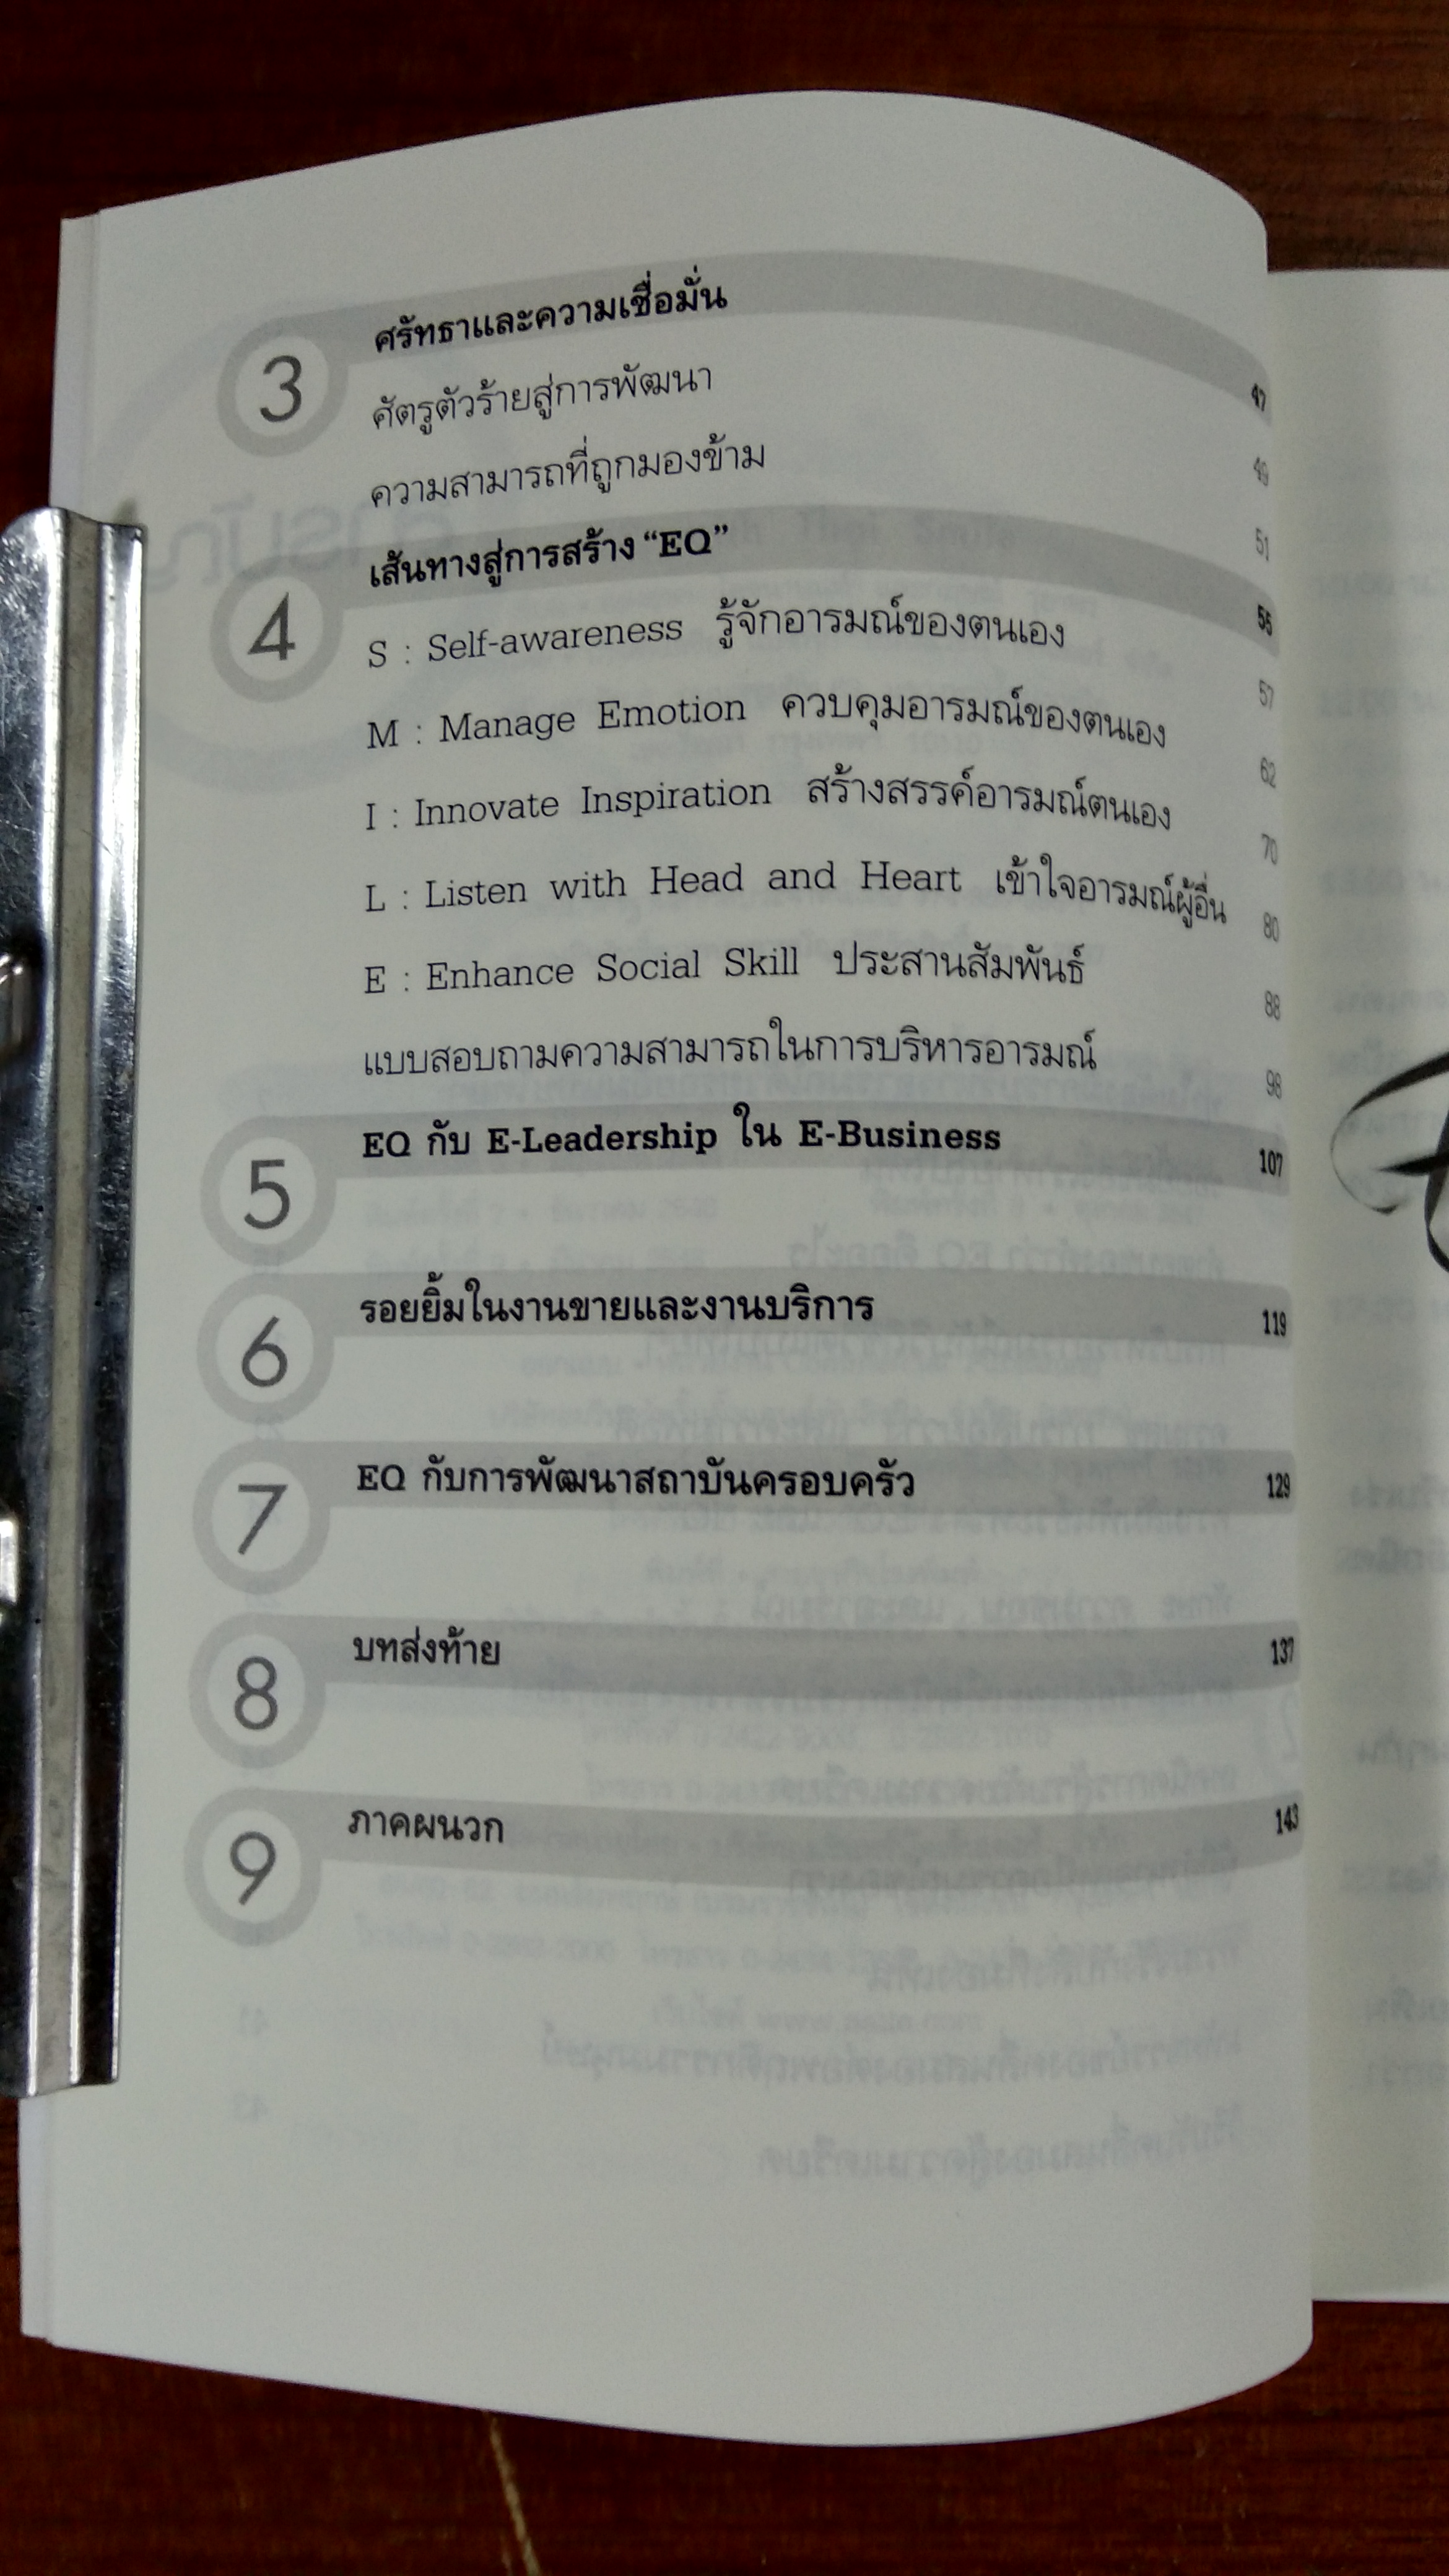 3 ศรัทธาและความเชื่อมั่น 47
ศัตรูตัวร้ายสู่การพัฒนา 49
ความสามารถที่ถูกมองข้าม 51
4 เส้นทางสู่การสร้าง “EQ” 55
S : Self-awareness รู้จักอารมณ์ของตนเอง 57
M : Manage Emotion ควบคุมอารมณ์ของตนเอง 62
I : Innovate Inspiration สร้างสรรค์อารมณ์ตนเอง 70
L : Listen with Head and Heart เข้าใจอารมณ์ผู้อื่น 80
E : Enhance Social Skill ประสานสัมพันธ์ 88
แบบสอบถามความสามารถในการบริหารอารมณ์ 98
5 EQ กับ E-Leadership ใน E-Business 107
6 รอยยิ้มในงานขายและงานบริการ 119
7 EQ กับการพัฒนาสถาบันครอบครัว 129
8 บทส่งท้าย 137
9 ภาคผนวก 143